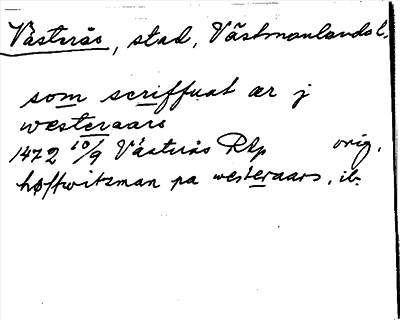 Västerås, stad, Västmanlands l.
som scriffuat ær j
westeraars
1472 10/9 Västerås RAp orig.
høffwitzman pa westeraars, ib.